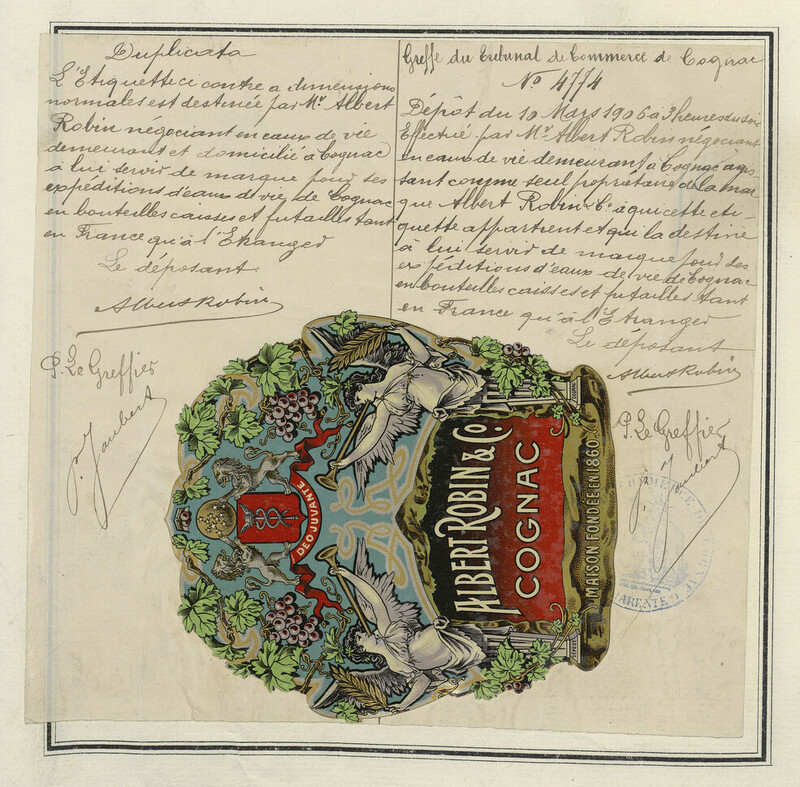 Duplicata
L'Etiquette ci contre a dimensions
normales est destinée par Mr Albert
Robin négociant en eaux de vie
demeurant et domicilié à Cognac
à lui servir de marque pour ses
expéditions d'eaux de vie de Cognac
en bouteilles caisses et futailles tant
en France qu'à l'Etranger
Le déposant
Albert Robin
P. Le Greffier
P. Jaubert
Greffe du Tribunal de Commerce de Cognac
No 4774
Dépôt du 10 Mars 1906 à 3 heures du soir
Effectué par Mr Albert Robin négociant
en eaux de vie demeurant à Cognac agis-
sant comme seul propriétaire de la mar-
que Albert Robin & Co à qui cette éti-
quette appartient et qui la destine
à lui servir de marque pour ses
expéditions d'eaux de vie de Cognac
en bouteilles caisses et futailles tant
en France qu'à l'Etranger
Le déposant
Albert Robin
P. Le Greffier
P. Jaubert
DEO JUVANTE
ALBERT ROBIN & Co
COGNAC
MAISON FONDÉE EN 1860